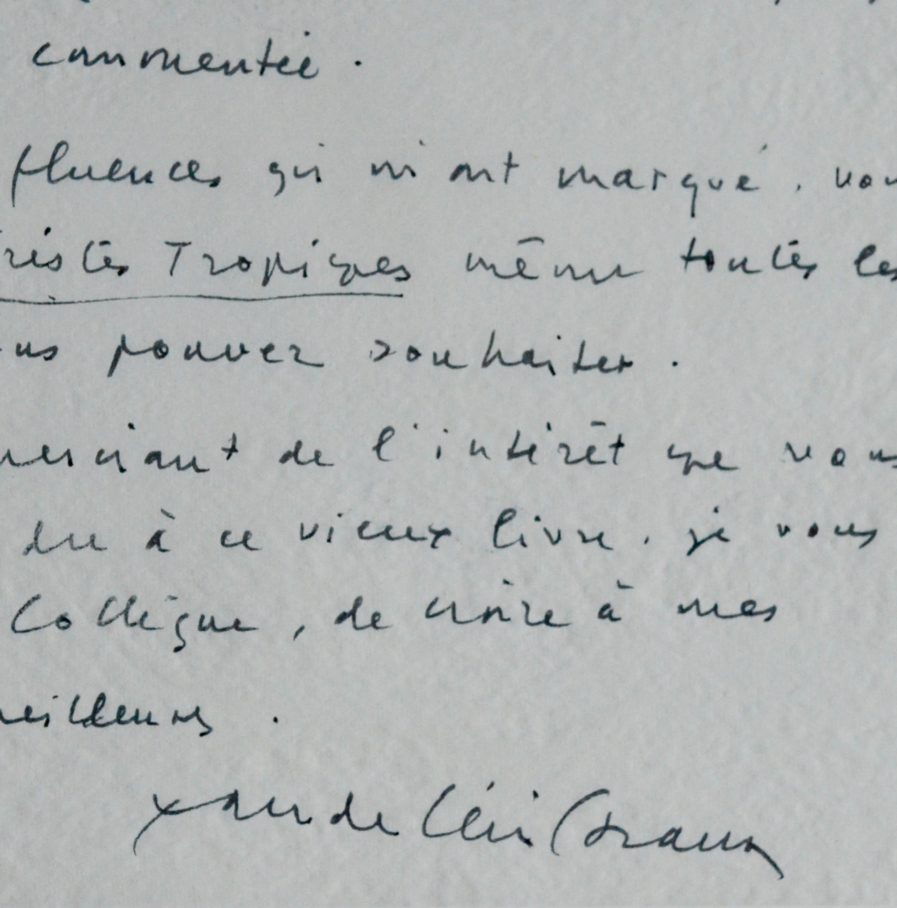 commentée.
fluences qui m'ont marqué, vou
ristes Tropiques même toutes les
us pouvez souhaiter.
merciant de l'intérêt que vous
du à ce vieux livre, je vous
Collègue, de croire à mes
meilleurs.
Claude Lévi-Strauss